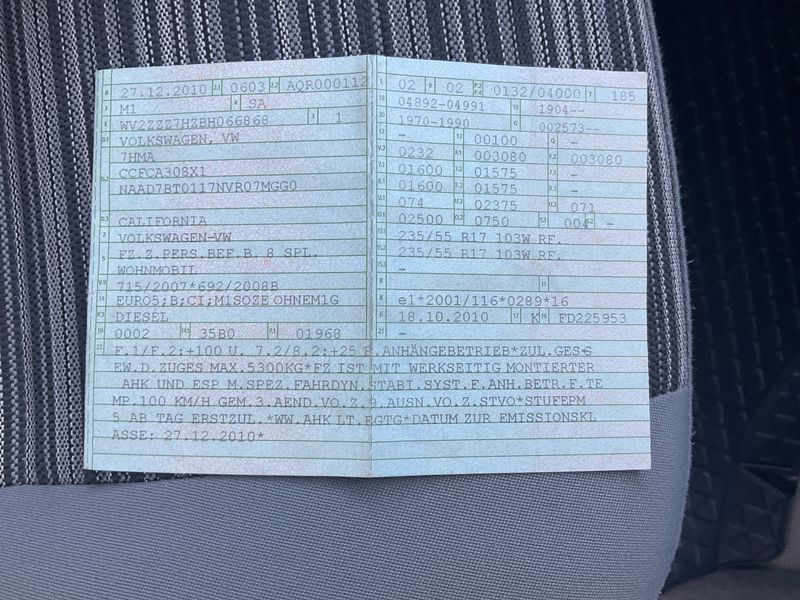 B 27.12.2010 2.1 0603 2.2 AQR000112
J M1 4 SA
E WV2ZZZ7HZBH066868 3 1
D.1 VOLKSWAGEN, VW
7HMA
D.2 CCFCA308X1
NAAD7BT0117NVR07MGG0
D.3 CALIFORNIA
2 VOLKSWAGEN-VW
5 FZ.Z.PERS.BEF.B. 8 SPL.
WOHNMOBIL
V.9 715/2007*692/2008B
14 EURO5;B;CI;M1SOZE OHNEM1G
P.3 DIESEL
10 0002 14.1 35B0 P.1 01968
L 02 9 02 P.2 P.4 0132/04000 T 185
18 04892-04991 19 1904--
20 1970-1990 G 002573--
12 - 13 00100 Q -
V.7 0232 F.1 003080 F.2 003080
7.1 01600 7.2 01575 7.3 -
8.1 01600 8.2 01575 8.3 -
U.1 074 U.2 02375 U.3 071
O.1 02500 O.2 0750 S.1 004 S.2 -
15.1 235/55 R17 103W RF.
15.2 235/55 R17 103W RF.
15.3 -
R 11
K e1*2001/116*0289*16
6 18.10.2010 17 K 16 FD225953
21 -
22 F.1/F.2:+100 U. 7.2/8.2:+25 B.ANHÄNGEBETRIEB*ZUL.GES-G
EW.D.ZUGES MAX.5300KG*FZ IST MIT WERKSEITIG MONTIERTER
AHK UND ESP M.SPEZ.FAHRDYN.STABI.SYST.F.ANH.BETR.F.TE
MP.100 KM/H GEM.3.AEND.VO.Z.9.AUSN.VO.Z.STVO*STUFEPM
5 AB TAG ERSTZUL.*WW.AHK LT.EGTG*DATUM ZUR EMISSIONSKL
ASSE: 27.12.2010*